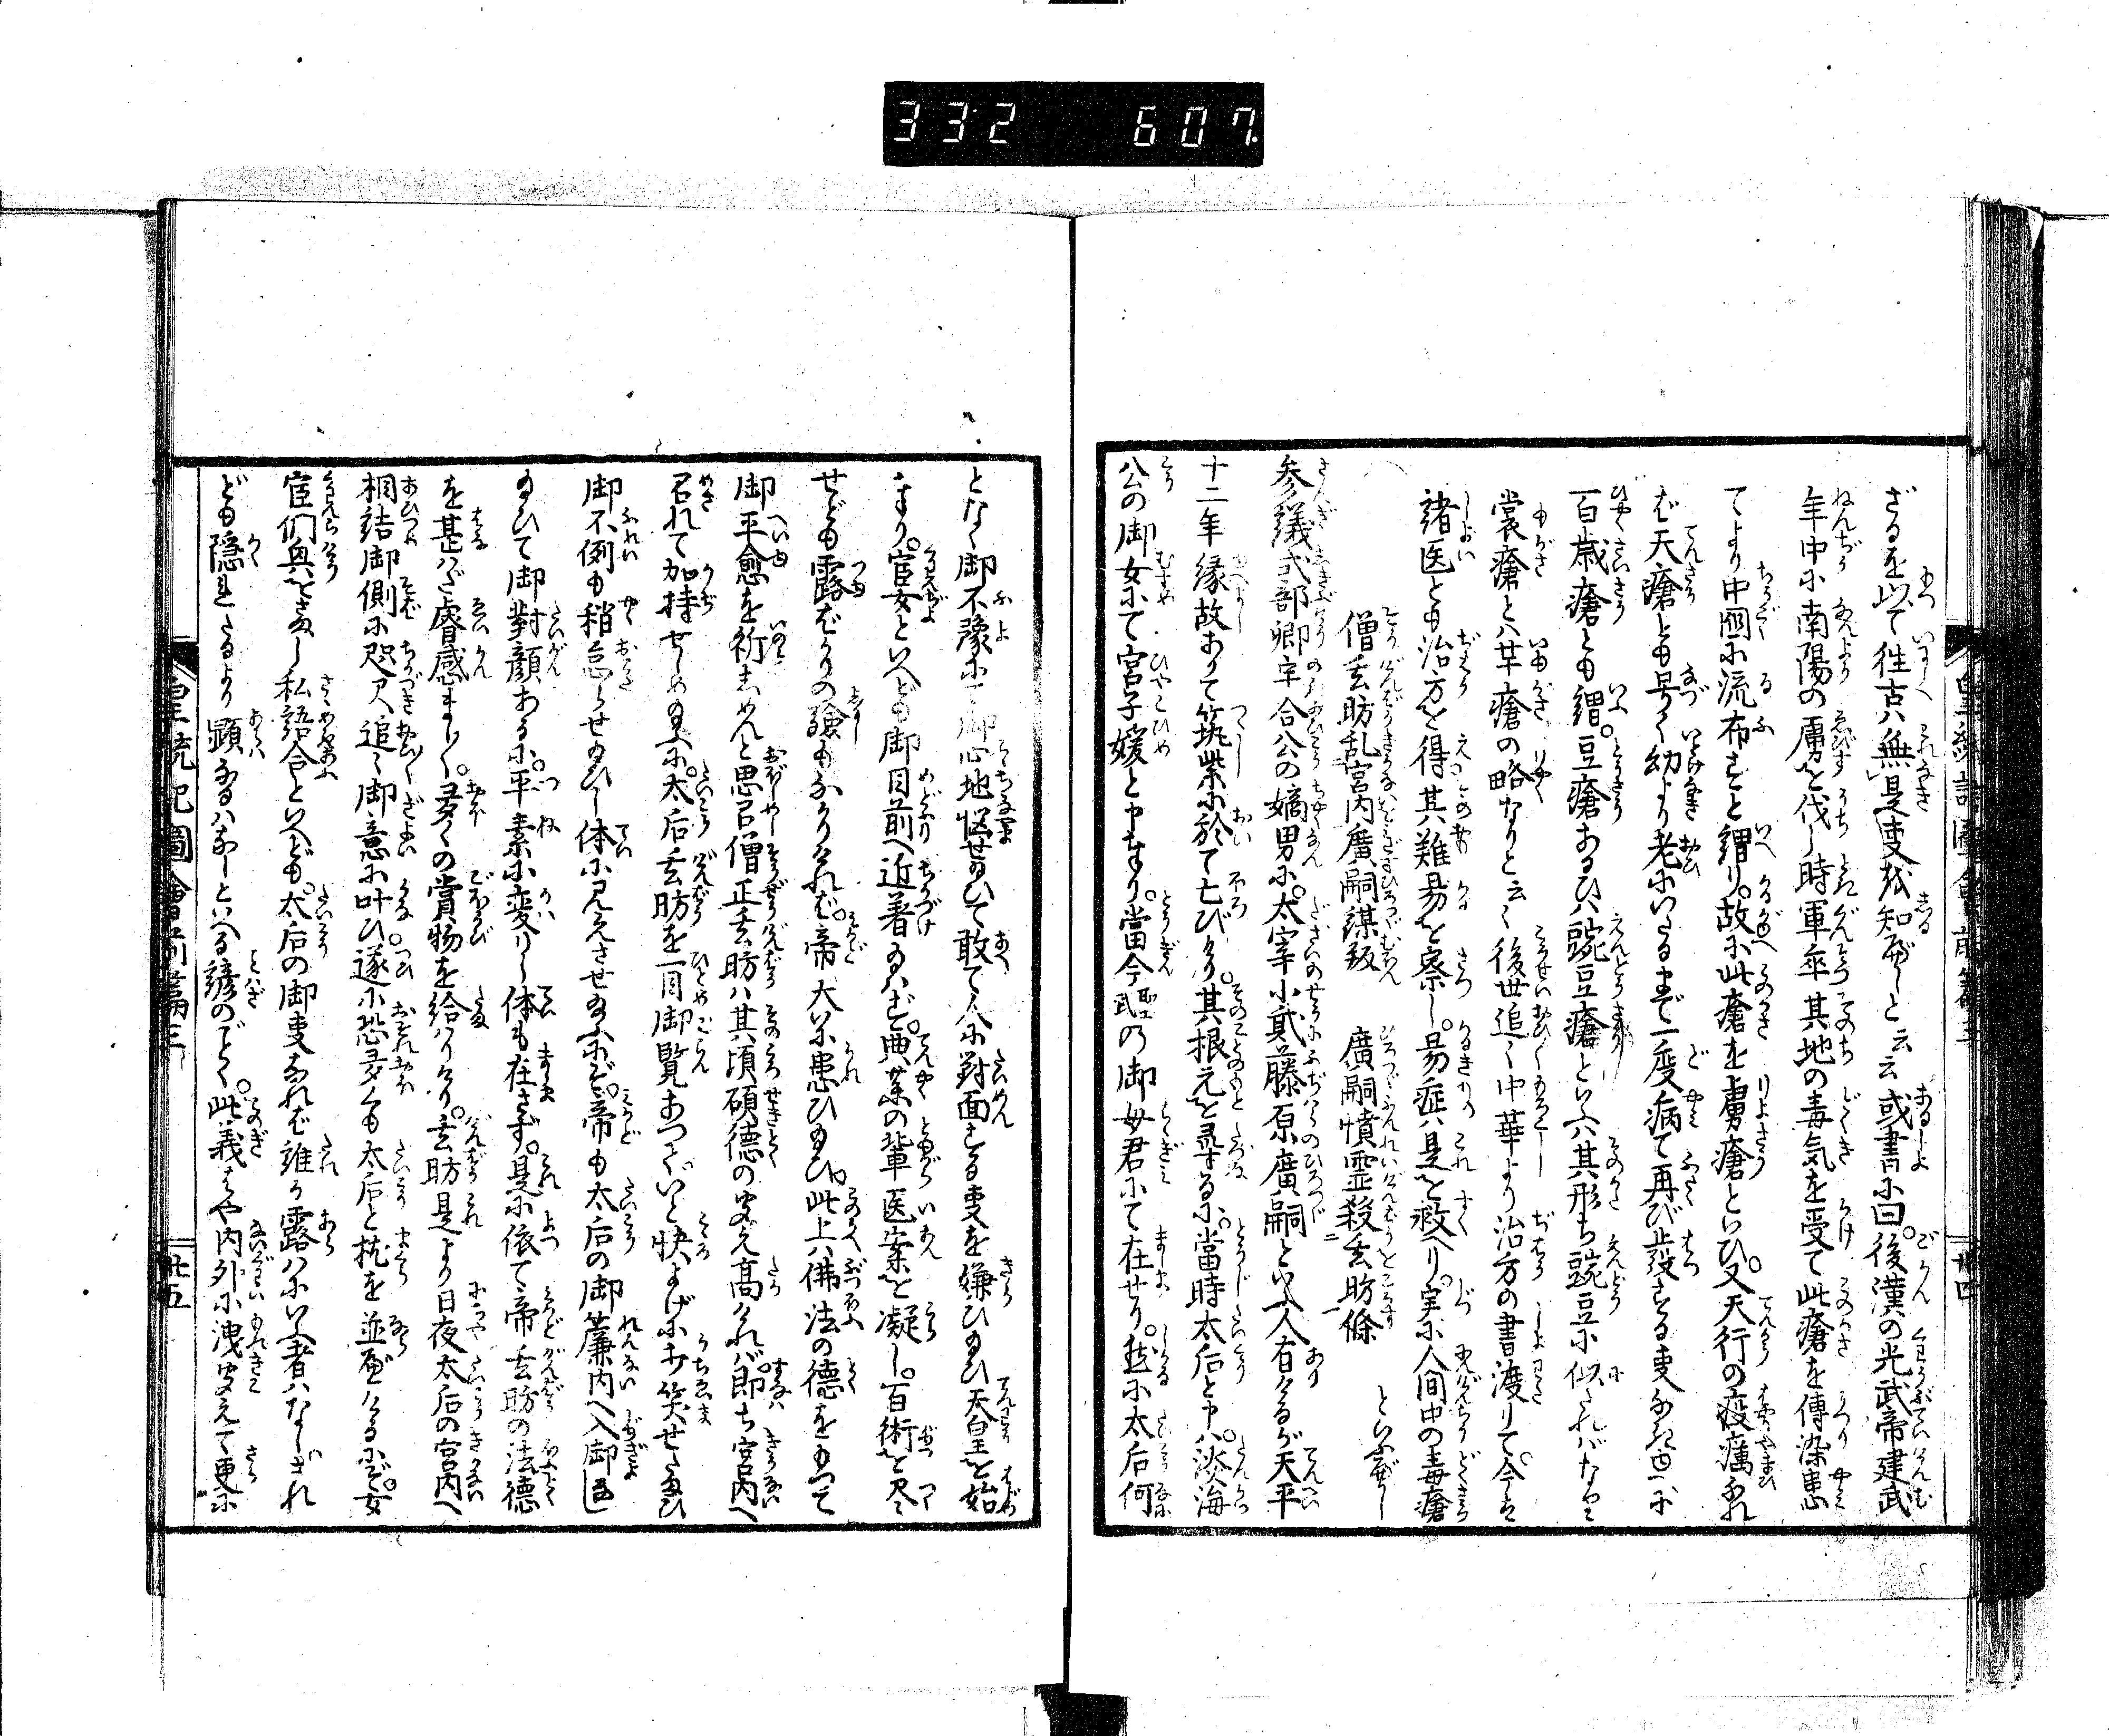 332 607
ざるを以て往古ハ無是事越知べしと云云或書に曰。後漢の光武帝建武
年中に南陽の虜を伐し時軍卒其地の毒気を受て此瘡を傳染患
てより中國に流布すと謂り。故に此瘡を虜瘡といひ。又天行の疫癘なれ
ば天瘡とも号く幼より老にいたるまで一度病て再び發する事なき
百歳瘡とも謂。豆瘡あるひハ豌豆瘡といふハ其形ち豌豆に似たれバなり
裳瘡とハ芋瘡の略なりと云々後世追々中華より治方の書渡りて。今は
諸医とも治方を得其難易を察し。易症ハ是を救へり。実に人間中の毒瘡
といふべし
僧玄昉乱宮内廣嗣謀叛 廣嗣憤霊殺玄昉條
参議式部卿宇合公の嫡男に。太宰小貳藤原廣嗣といふ人有けるが天平
十二年縁故ありて筑紫に於て亡びけり。其根元を尋るに。當時太后と申ハ。淡海
公の御女にて宮子媛と申奉り。當今聖武の御母君にて在せり。然に太后何
となく御不豫に御心地悩せ給ひて敢て人に對面する事を嫌ひ給ひ天皇を始
奉り。宦女といへども御目前へ近着給ハず。典薬の輩医案を凝し。百術を尽
せども露ばかりの験もなかりけれバ。帝大に患ひ給ひ此上ハ佛法の徳をもつて
御平愈を祈しめんと思召僧正玄昉ハ其頃碩徳の聞え高けれバ。即ち宮内へ
召れて加持せしめ給ふに。太后玄昉を一目御覧あつて。いと快よげに打笑せたまひ
御不例も稍怠らせ給ひし体に見えさせ給ふにぞ。帝も太后の御簾内へ入御
給ひて御對顔あるに。平素に変りし体も在さず。是に依て帝玄昉の法徳
を甚ハだ睿感まし〳〵。夛くの賞物を給ハりけり。玄昉是より日夜太后の宮内へ
相詰御側に咫尺追々御意に叶ひ遂に恐夛くも太后と枕を並べけるにぞ。女
宦们奥をさまし私語合といへども。太后の御事なれば誰か露ハにいふ者ハなし。され
ども隠たるより顕なるハなしといへる諺のごとく。此義はや内外に洩聞えて更に
皇統記圖會前篇三
廿五